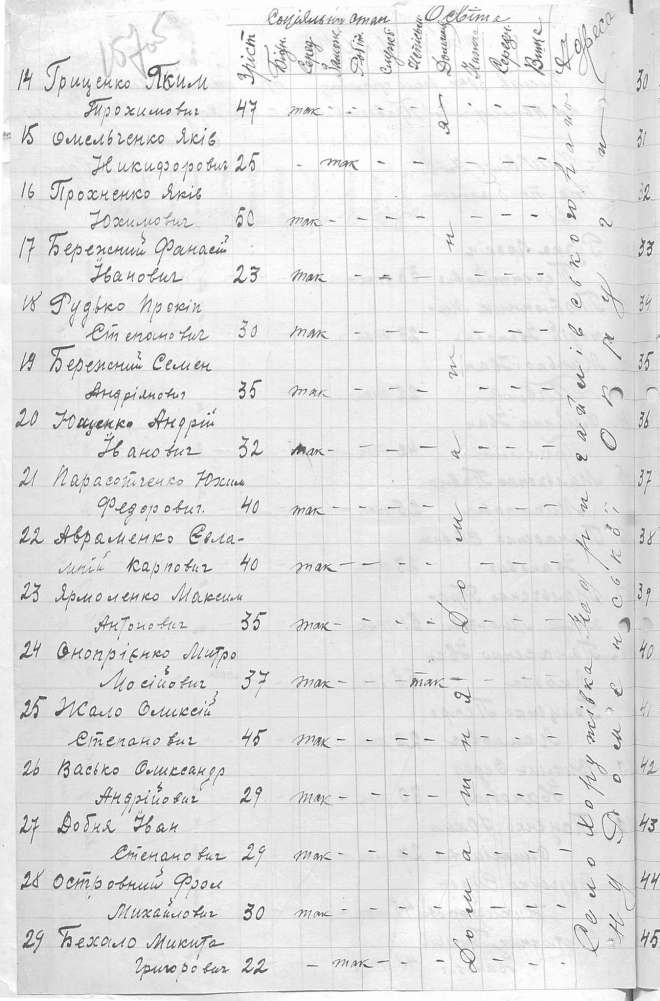 Соціяльний стан Освіта
Зріст Бідн. Серед. Замож. Робіт. Служб. Домашн. Нижча Середн. Вища Адреса
14 Гриценко Яким
Трохимович 47 так - - - - - - -
15 Омельченко Яків
Никифорович 25 - так - - - - - -
16 Прохненко Яків
Юхимович 50 так - - - - - - -
17 Бережний Фанасій
Іванович 23 так - - - - - - -
18 Рудько Прокіп
Степанович 30 так - - - - - - -
19 Бережний Семен
Андріянович 35 так - - - - - - -
20 Ющенко Андрій
Іванович 32 так - - - - - - -
21 Парасотченко Юхим
Федорович 40 так - - - - - - -
22 Авраменко Євла-
мпій Карпович 40 так - - - - - - -
23 Ярмоленко Максим
Антонович 35 так - - - - - - -
24 Онопрієнко Митро
Мосійович 37 так - - - так - -
25 Жало Оликсій
Степанович 45 так - - - - - - -
26 Васько Олександр
Андрійович 29 так - - - - - - -
27 Добня Іван
Степанович 29 так - - - - - - -
28 Островний Фрол
Михайлович 30 так - - - - - - -
29 Бехало Микита
Григорович 22 - так - - - - - -
Домашня Домашня
Село Хоружівка Недригайлівського рай-
ну Роменської Округи
30
31
32
33
34
35
36
37
38
39
40
41
42
43
44
45